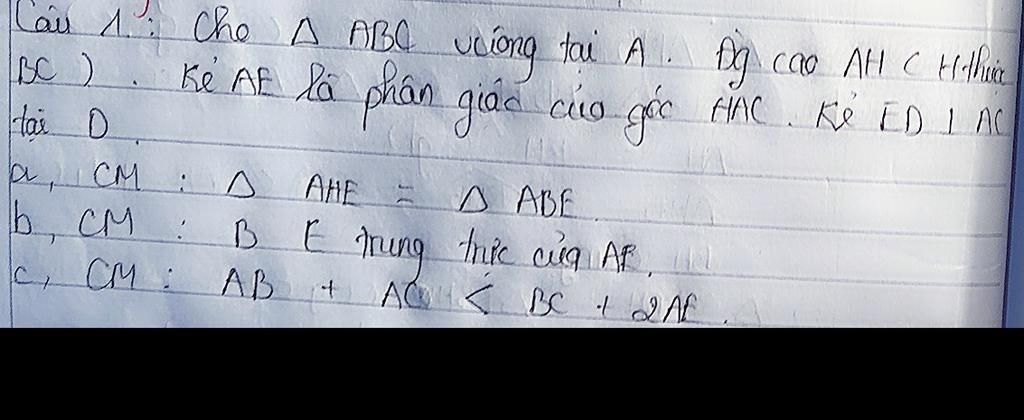 Câu 1 : Cho Δ ABC vuông tại A. Đg cao AH ( H thuộc
BC ) . Kẻ AE là phân giác của góc HAC. Kẻ ED ⊥ AC
tại D
a, CM : Δ AHE = Δ ABE.
b, CM : B E trung trực của AE.
c, CM : AB + AC < BC + 2AE.